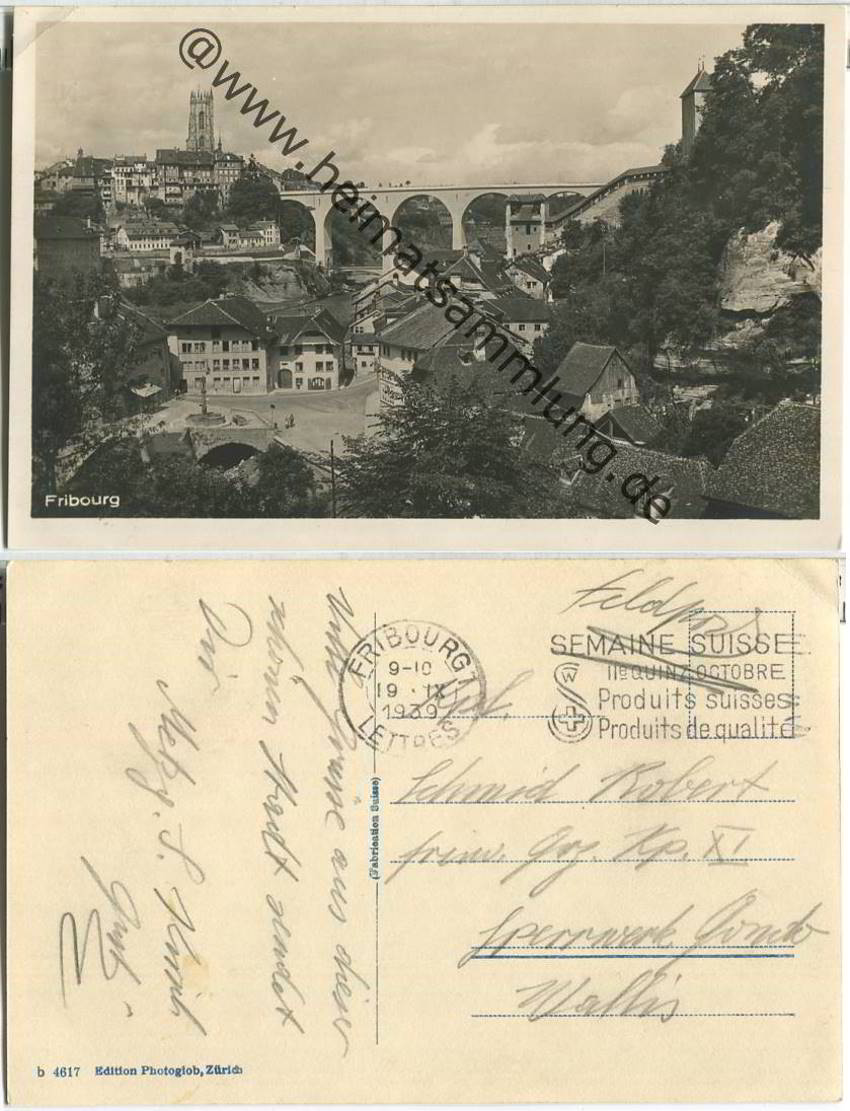 @www.heimatsammlung.de
Fribourg
Viele Grüsse aus dieser
schönen Stadt sendet
Dir
Metzg. S.
FRIBOURG 1
9-10
19. IX
1939
LETTRES
Feldpost
SEMAINE SUISSE
IIe QUINZ. OCTOBRE
Produits suisses
Produits de qualité
Schmid Robert
freiw. Grz. Kp. XI
Sperrwerk Gondo
Wallis
(Fabrication Suisse)
b 4617 Edition Photoglob, Zürich